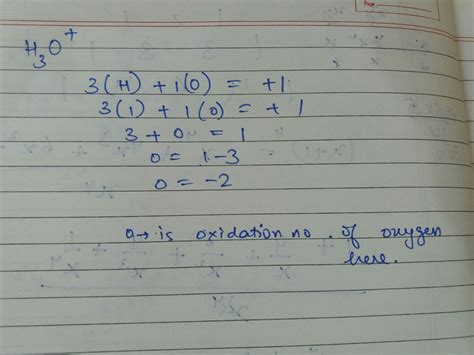 H₃O⁺
3(H) + 1(O) = +1
3(1) + 1(O) = + 1
3 + O = 1
O = 1-3
O = -2
O→ is oxidation no. of oxygen
here.